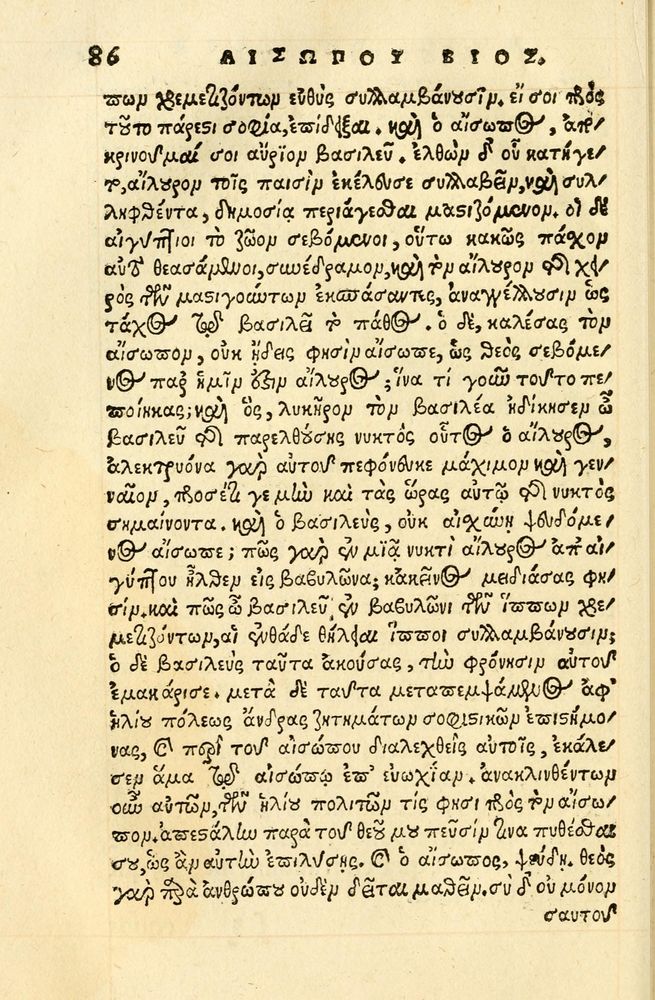 86 ΑΙΣΩΠΟΥ ΒΙΟΣ.
πων χρεμετιζόντων εὐθὺς συλλαμβάνουσιν. εἴ σοι πρὸς
τοῦτο πάρεστι σοφία, ἐπίδειξαι. καὶ ὁ αἴσωπος, ἀπο
κρινοῦμαί σοι αὔριον βασιλεῦ. ἐλθὼν δ' οὗ κατήγε
το, αἴλουρον τοῖς παισὶν ἐκέλευσε συλλαβεῖν, καὶ συλ
ληφθέντα, δημοσίᾳ περιάγεσθαι μαστιζόμενον. οἱ δὲ
αἰγύπτιοι τὸ ζῶον σεβόμενοι, οὕτω κακῶς πάσχον
αὐτὸ θεασάμενοι, συνέδραμον, καὶ τὸν αἴλουρον τῆς χει
ρὸς τῶν μαστιγούντων ἐκσπάσαντες, ἀναγγέλλουσιν ὡς
τάχος τῷ βασιλεῖ τὸ πάθος. ὁ δὲ, καλέσας τὸν
αἴσωπον, οὐκ ᾔδεις φησὶν αἴσωπε, ὡς θεὸς σεβόμε
νος παρ' ἡμῖν ἐστιν αἴλουρος; ἵνα τί γοῦν τοῦτο πε
ποίηκας; καὶ ὃς, λυκῆρον τὸν βασιλέα ἠδίκησεν ὦ
βασιλεῦ τῆς παρελθούσης νυκτὸς οὗτος ὁ αἴλουρος,
ἀλεκτρυόνα γὰρ αὐτοῦ πεφόνευκε μάχιμον καὶ γεν
ναῖον, προσέτι γε μὴν καὶ τὰς ὥρας αὐτῷ τῆς νυκτὸς
σημαίνοντα. καὶ ὁ βασιλεὺς, οὐκ αἰσχύνῃ ψευδόμε
νος αἴσωπε; πῶς γὰρ ἐν μιᾷ νυκτὶ αἴλουρος ἀπ' αἰ
γύπτου ἦλθεν εἰς βαβυλῶνα; κἀκεῖνος μειδιάσας φη
σίν. καὶ πῶς ὦ βασιλεῦ, ἐν βαβυλῶνι τῶν ἵππων χρε
μετιζόντων, αἱ ἐνθάδε θήλειαι ἵπποι συλλαμβάνουσιν;
ὁ δὲ βασιλεὺς ταῦτα ἀκούσας, τὴν φρόνησιν αὐτοῦ
ἐμακάρισε. μετὰ δὲ ταῦτα μεταπεμψάμενος ἀφ'
ἡλίου πόλεως ἄνδρας ζητημάτων σοφιστικῶν ἐπιστήμο
νας, καὶ περὶ τοῦ αἰσώπου διαλεχθεὶς αὐτοῖς, ἐκάλε
σεν ἅμα τῷ αἰσώπῳ ἐπ' εὐωχίαν. ἀνακλινθέντων
οὖν αὐτῶν, τῶν ἡλίου πολιτῶν τίς φησι πρὸς τὸν αἴσω
πον. ἀπεστάλην παρὰ τοῦ θεοῦ μου πεῦσίν τινα πυθέσθαι
σου, ὡς ἂν αὐτὴν ἐπιλύσῃς. καὶ ὁ αἴσωπος, ψεύδῃ. θεὸς
γὰρ παρὰ ἀνθρώπου οὐδὲν δεῖται μαθεῖν. σὺ δ' οὐ μόνον
σαυτοῦ